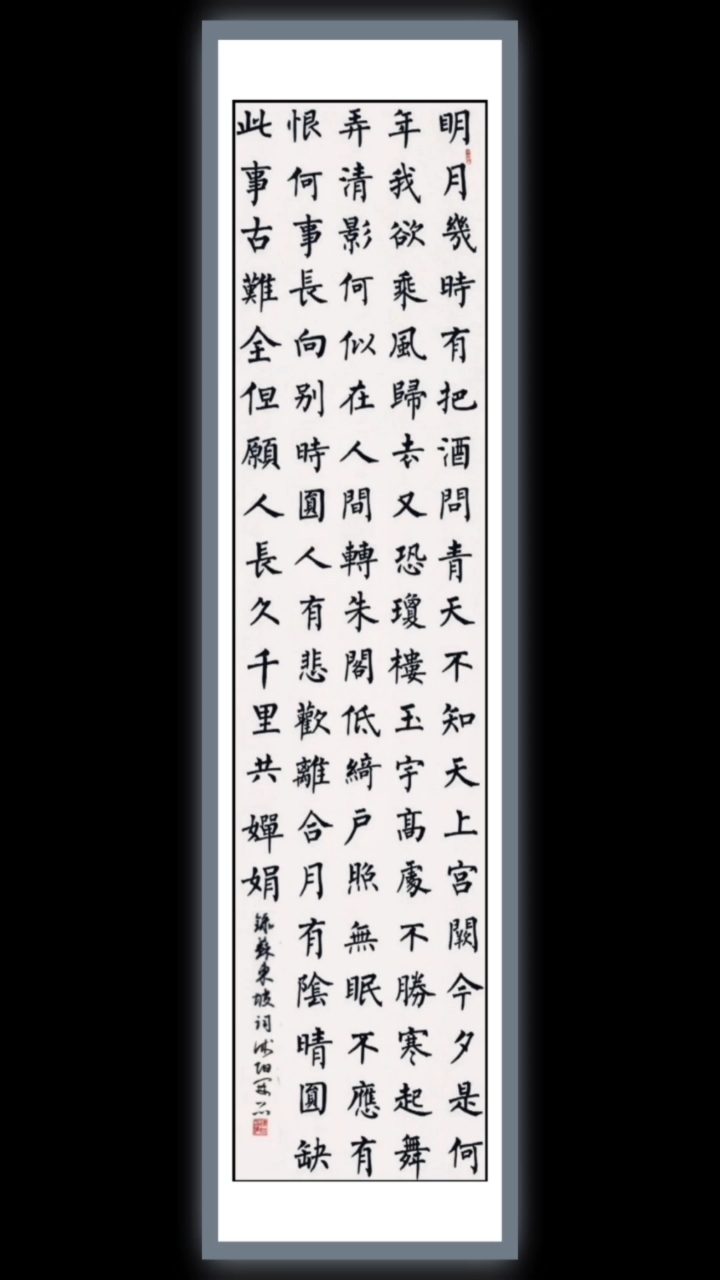 明月幾時有把酒問青天不知天上宮闕今夕是何
年我欲乘風歸去又恐瓊樓玉宇髙處不勝寒起舞
弄清影何似在人間轉朱閣低綺戶照無眠不應有
恨何事長向别時圓人有悲歡離合月有陰晴圓缺
此事古難全但願人長久千里共嬋娟
錄蘇東坡詞